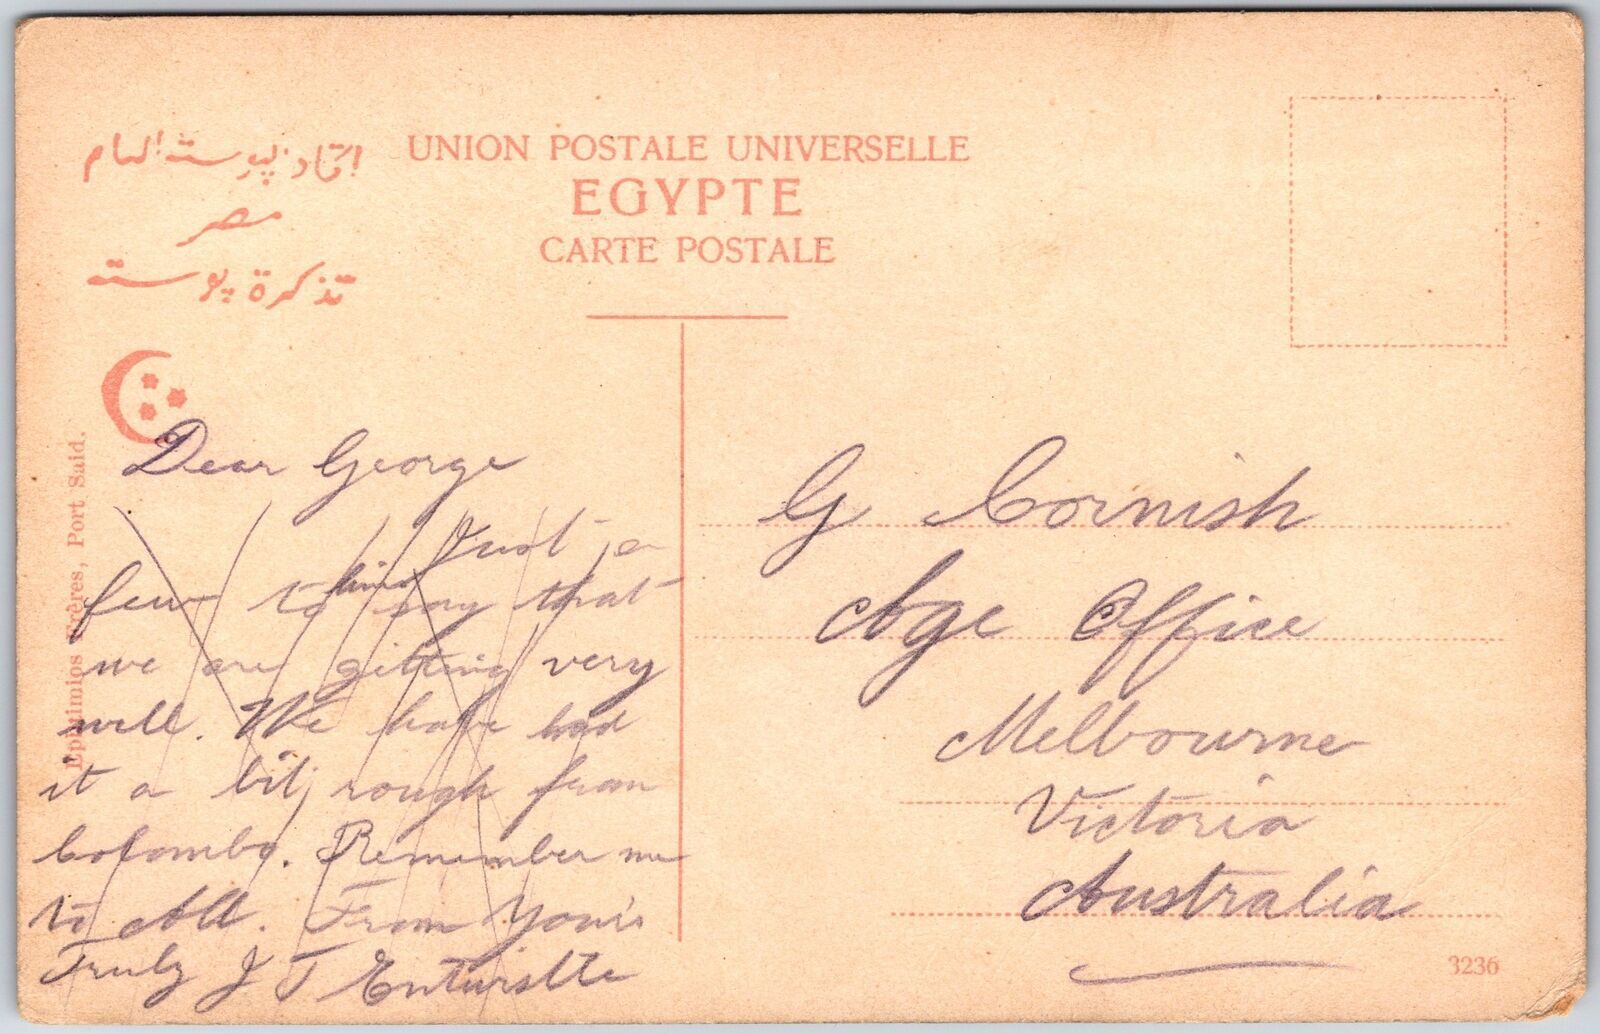 اتحاد پوسته العام
مصر
تذكرة پوسته
UNION POSTALE UNIVERSELLE
EGYPTE
CARTE POSTALE
Ephtimios Frères, Port Said.
Dear George
Just a
few lines to say that
we are gitting very
well. We have had
it a bit rough from
Colombo. Remember me
to All. From Your's
Truly J T Entwistle
G Cornish
Age Office
Melbourne
Victoria
Australia
3236